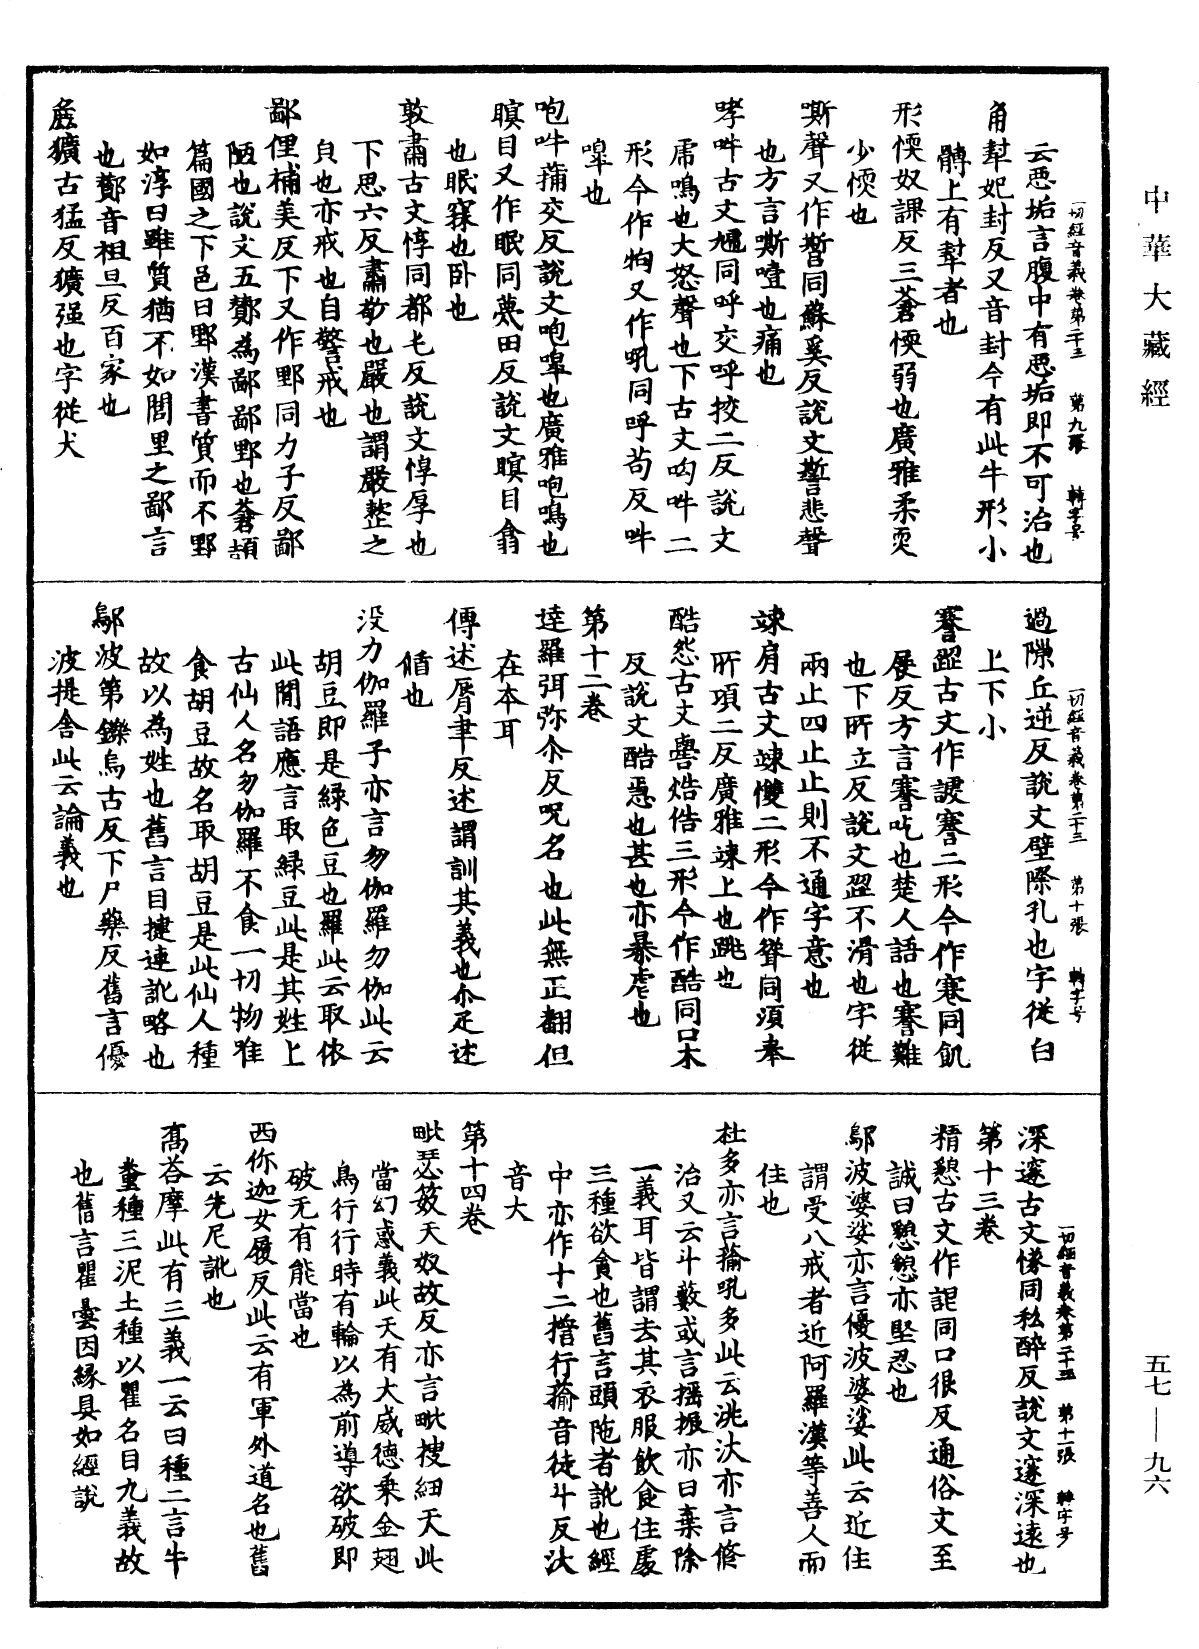 中華大藏經
一切經音義卷第二十三　第九張　轉字号
云惡垢言腹中有惡垢即不可治也
角犎妃封反又音封今有此牛形小
髆上有犎者也
形愞奴課反三蒼愞弱也廣雅柔耎
少愞也
嘶聲又作誓同蘇奚反說文誓悲聲
也方言嘶噎也痛也
哮吽古文虓同呼交呼挍二反說文
虎鳴也大怒聲也下古文呴吽二
形今作狗又作吼同呼苟反吽
嘷也
咆吽蒱交反說文咆嘷也廣雅咆鳴也
瞑目又作眠同莫田反說文瞑目翕
也眠寐也卧也
敦肅古文惇同都屯反說文惇厚也
下思六反肅敬也嚴也謂嚴整之
皃也亦戒也自警戒也
鄙俚補美反下又作野同力子反鄙
陋也說文五酇為鄙鄙野也蒼頡
篇國之下邑曰野漢書質而不野
如淳曰雖質猶不如閭里之鄙言
也酇音祖旦反百家也
麁獷古猛反獷强也字從犬
一切經音義卷第二十三　第十張　轉字号
過隙丘逆反說文壁際孔也字從白
上下小
謇澀古文作謇二形今作蹇同飢
展反方言謇吃也楚人語也謇難
也下所立反說文澀不滑也字從
兩止四止止則不通字意也
竦肩古文竦㥦二形今作聳同須奉
所項二反廣雅竦上也跳也
酷怨古文嚳焅俈三形今作酷同口木
反說文酷急也甚也亦暴虐也
第十二卷
達羅弭弥尒反呪名也此無正翻但
在本耳
傳述脣聿反述謂訓其義也尒疋述
循也
没力伽羅子亦言勿伽羅勿伽此云
胡豆即是綠色豆也羅此云取依
此間語應言取綠豆此是其姓上
古仙人名勿伽羅不食一切物唯
食胡豆故名取胡豆是此仙人種
故以為姓也舊言目揵連訛略也
鄔波第鑠烏古反下尸藥反舊言優
波提舍此云論義也
一切經音義卷第二十三　第十一張　轉字号
深邃古文㥞同私醉反說文邃深遠也
第十三卷
精懇古文作詪同口很反通俗文至
誠曰懇懇亦堅忍也
鄔波婆娑亦言優波婆娑此云近住
謂受八戒者近阿羅漢等善人而
住也
杜多亦言䔮吼多此云洮汰亦言修
治又云斗藪或言搖振亦曰棄除
一義耳皆謂去其衣服飲食住處
三種欲貪也舊言頭陁者訛也經
中亦作十二㨻行䔮音徒斗反汰
音大
第十四卷
毗瑟笯天奴故反亦言毗搜紐天此
當幻惑義此天有大威德乘金翅
鳥行行時有輪以為前導欲破即
破无有能當也
西你迦女履反此云有軍外道名也舊
云先尼訛也
高荅摩此有三義一云日種二言牛
糞種三泥土種以瞿名目九義故
也舊言瞿曇因緣具如經說
五七—九六